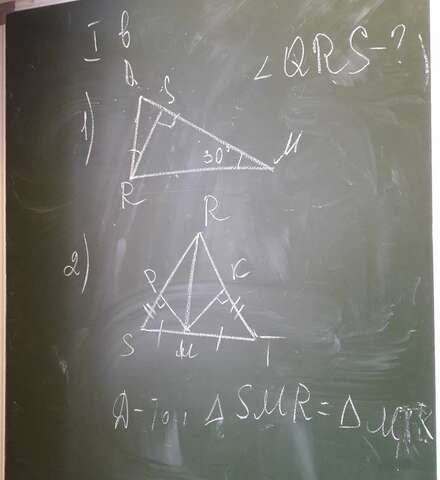 I в
∠QRS-?
1)
Q
S
30°
M
R
2)
R
P
K
S
M
T
Д-ть, △SMR=△MTR